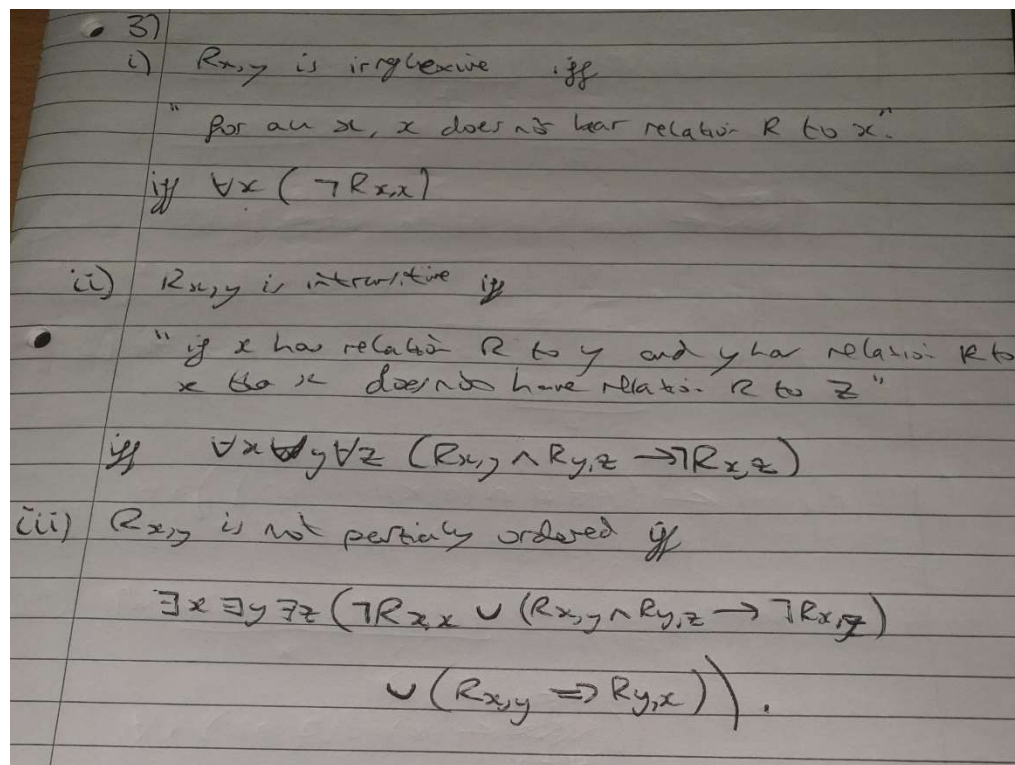 3)
i) Rx,y is irreflexive iff
"for all x, x does not bear relation R to x".
iff ∀x (¬Rx,x)
ii) Rx,y is intransitive iff
"if x has relation R to y and y has relation R to
x the x does not have relation R to z"
iff ∀x∀y∀z (Rx,y ∧ Ry,z →¬Rx,z)
iii) Rx,y is not partialy ordered if
∃x ∃y ∃z (¬Rx,x ∪ (Rx,y ∧ Ry,z → ¬Rx,z)
∪ (Rx,y => Ry,x)).